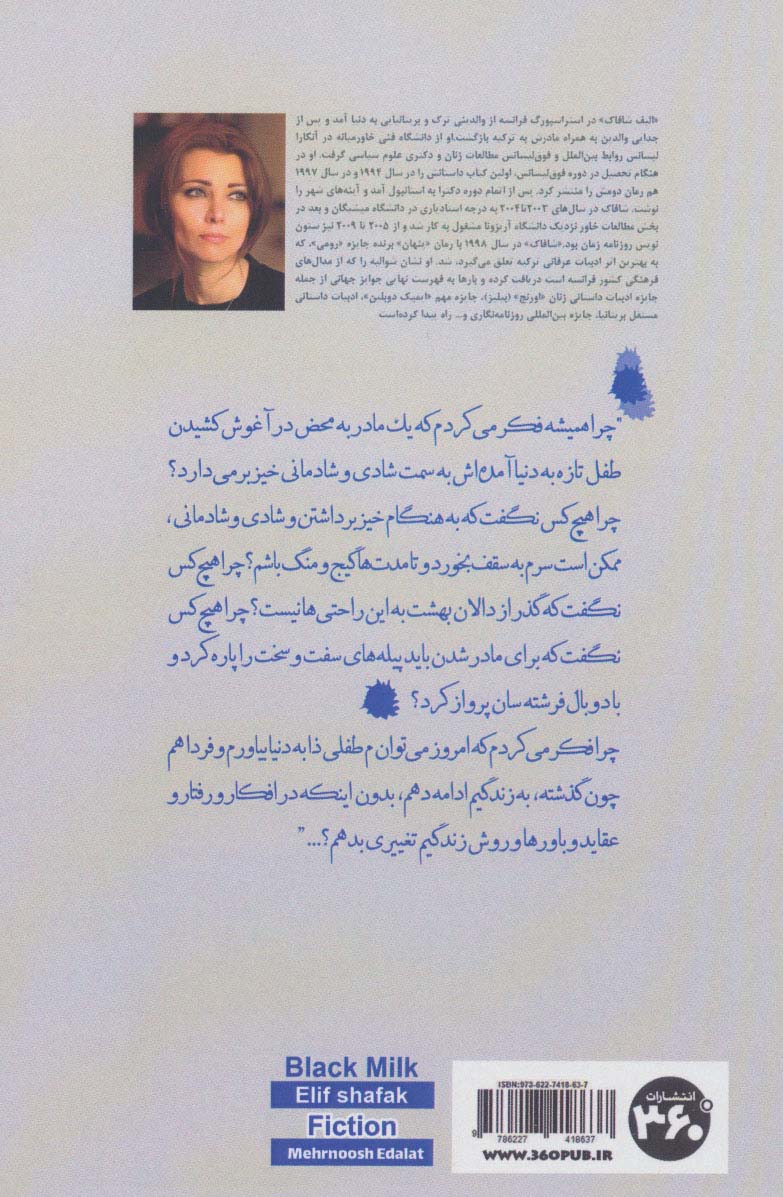 «الیف شافاک» در استراسبورگ فرانسه از والدینی ترک و بریتانیایی به دنیا آمد و پس از
جدایی والدین به همراه مادرش به ترکیه بازگشت.او از دانشگاه فنی خاورمیانه در آنکارا
لیسانس روابط بین‌الملل و فوق‌لیسانس مطالعات زنان و دکتری علوم سیاسی گرفت. او در
هنگام تحصیل در دوره فوق‌لیسانس، اولین کتاب داستانش را در سال ۱۹۹۴ و در سال ۱۹۹۷
هم رمان دومش را منتشر کرد. پس از اتمام دوره دکترا به استانبول آمد و آینه‌های شهر را
نوشت. شافاک در سال‌های ۲۰۰۳تا۲۰۰۴ به درجه استادیاری در دانشگاه میشیگان و بعد در
بخش مطالعات خاور نزدیک دانشگاه آریزونا مشغول به کار شد و از ۲۰۰۵ تا ۲۰۰۹ نیز ستون
نویس روزنامه زمان بود.«شافاک» در سال ۱۹۹۸ با رمان «پنهان» برنده جایزه «رومی»، که
به بهترین اثر ادبیات عرفانی ترکیه تعلق می‌گیرد، شد. او نشان شوالیه را که از مدال‌های
فرهنگی کشور فرانسه است دریافت کرده و بارها به فهرست نهایی جوایز جهانی از جمله
جایزه ادبیات داستانی زنان «اورنج» (بیلیز)، جایزه مهم «ایمپک دوبلین»، ادبیات داستانی
مستقل بریتانیا، جایزه بین‌المللی روزنامه‌نگاری و... راه پیدا کرده‌است
"چرا همیشه فکر می‌کردم که یک مادر به محض در آغوش کشیدن
طفل تازه به دنیا آمده‌اش به سمت شادی و شادمانی خیز بر می‌دارد؟
چرا هیچ کس نگفت که به هنگام خیز برداشتن و شادی و شادمانی،
ممکن است سرم به سقف بخورد و تا مدت‌ها گیج و منگ باشم؟ چرا هیچ کس
نگفت که گذر از دالان بهشت به این راحتی‌ها نیست؟ چرا هیچ کس
نگفت که برای مادر شدن باید پیله‌های سفت و سخت را پاره کرد و
با دو بال فرشته سان پرواز کرد؟
چرا فکر می‌کردم که امروز می‌توانم طفلی ذا به دنیا بیاورم و فردا هم
چون گذشته، به زندگیم ادامه دهم، بدون اینکه در افکار و رفتار و
عقاید و باورها و روش زندگیم تغییری بدهم؟..."
Black Milk
Elif shafak
Fiction
Mehrnoosh Edalat
ISBN:973-622-7418-63-7
9 786227 418637
WWW.360PUB.IR
انتشارات
۳۶۰